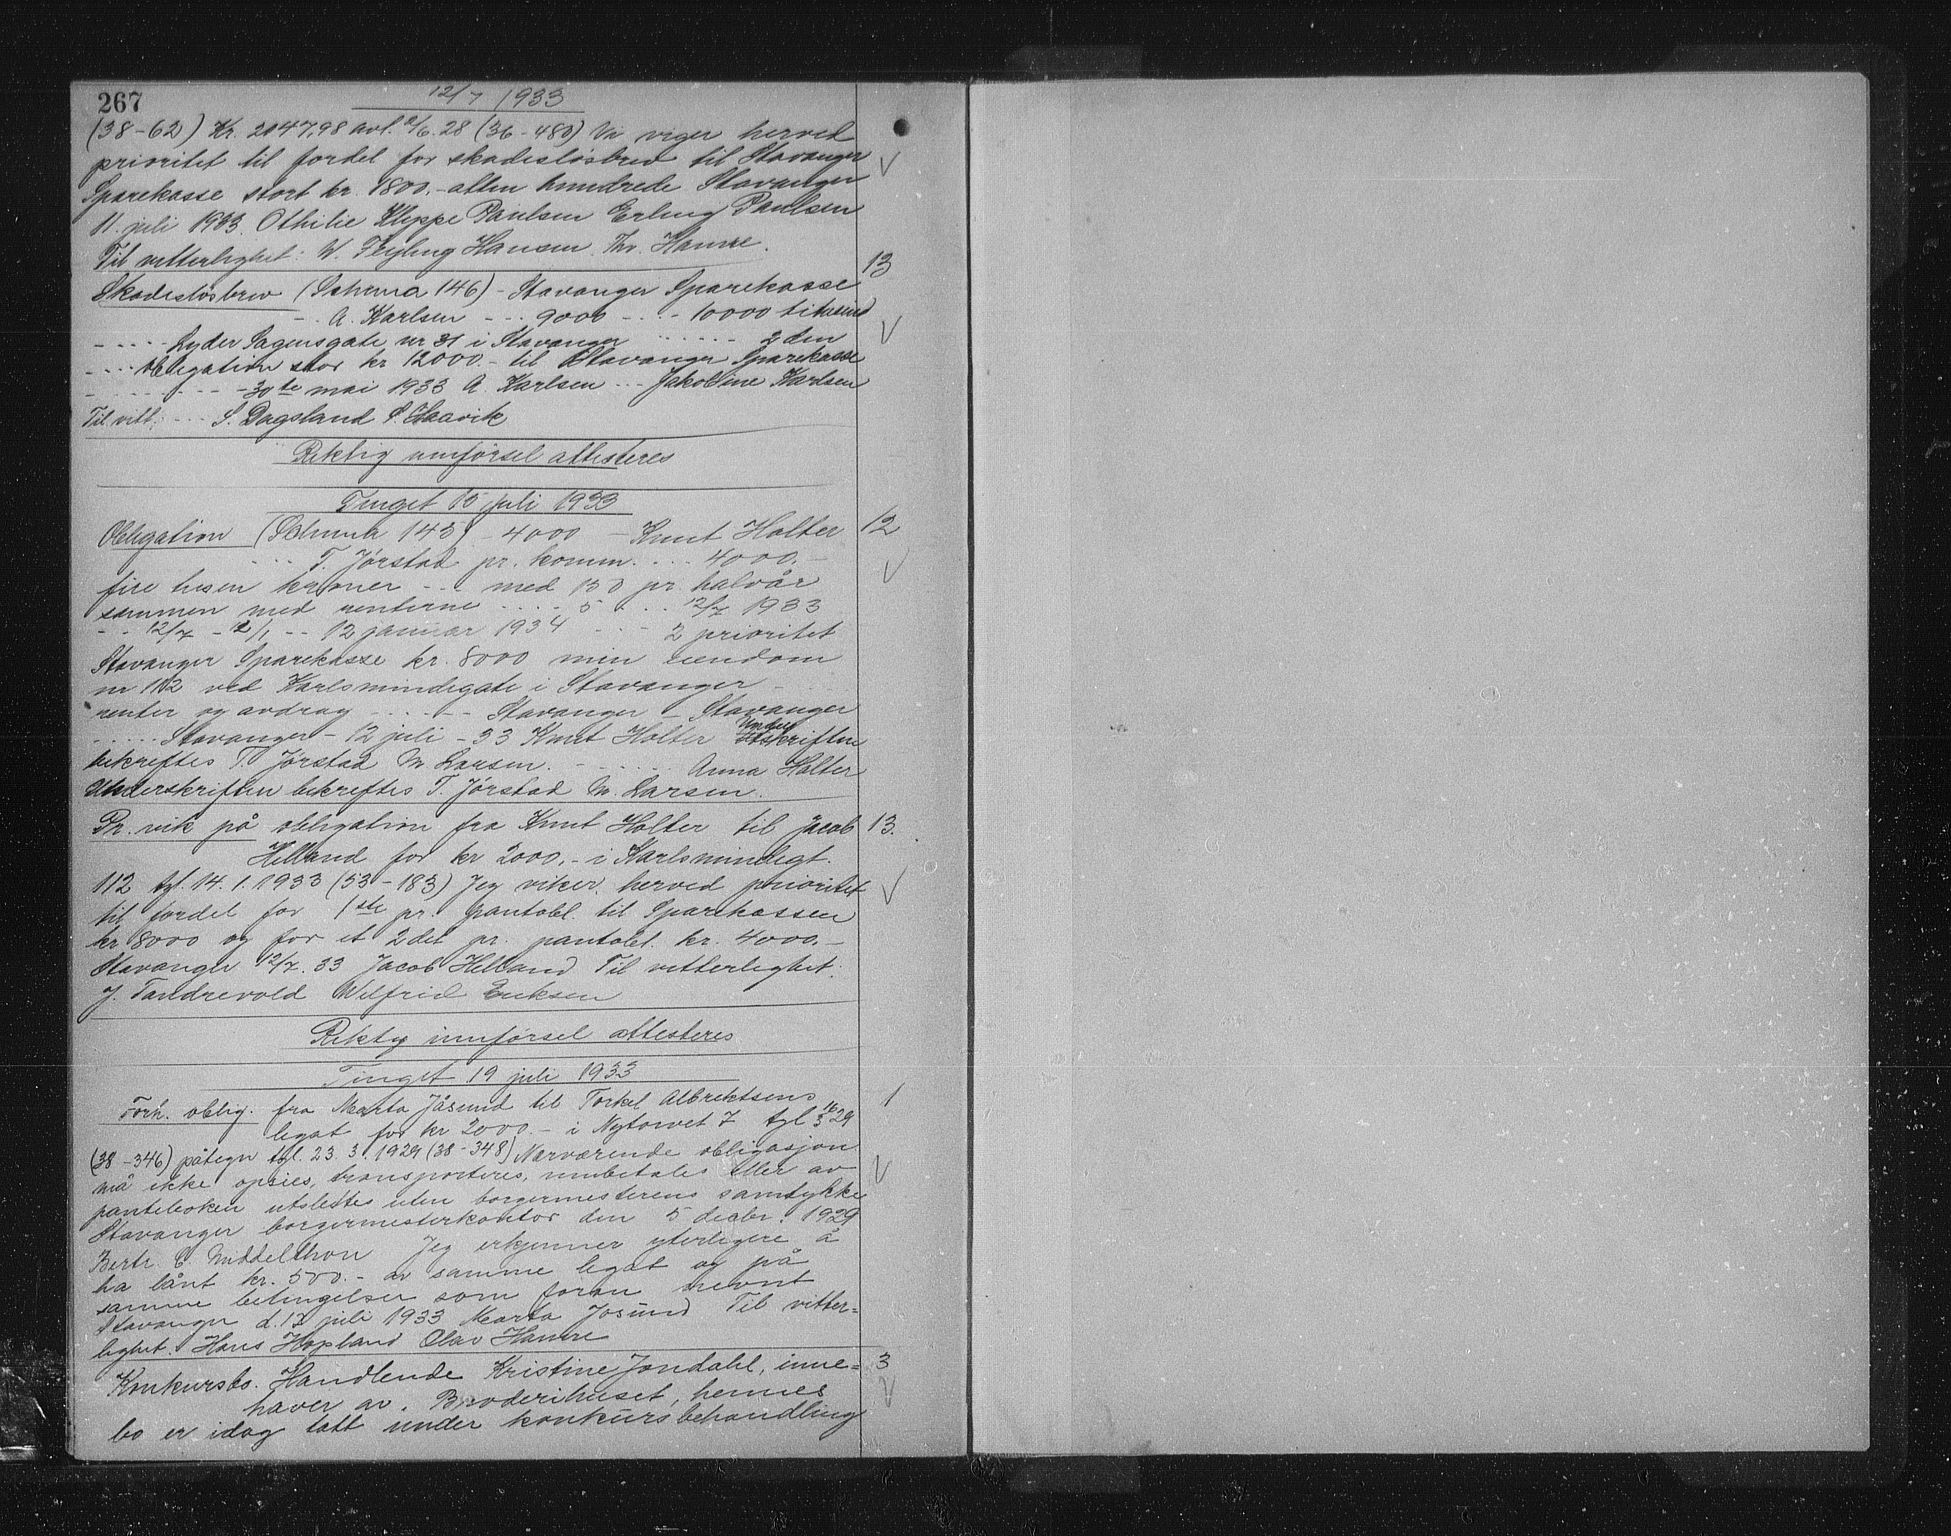 267
12/7 1933
(38-62) Kr. 2047,98 avl. 2/6.28 (36-480) Vi viger herved
prioritet til fordel for skadesløsbrev til Stavanger
Sparekasse stort kr. 1800.- atten hundrede Stavanger
11. juli 1933. Othilie Kleppe Paulsen Erling Paulsen
Til vitterlighet: W. Hansen Thv. Hamre.
13
Skadesløsbrev (Schema 146) - Stavanger Sparekasse
- . A. Karlsen - - . 9000 - . . - 10000 titusind
- - . . - Lyder Sagensgate nr 31 i Stavanger . . . . . - 2 den
- . . . obligation stor kr 12000.- til Stavanger Sparekasse
- . . - - - 30te mai 1933 A. Karlsen - . . Jakobine Karlsen
Til vitt: - . . S. Dagsland S. Haavik
Riktig innførsel attesteres
Tinget 15 juli 1933
Obligation (Schema 143) - 4000 - Knut Holter 12
. . . T. Jørstad pr. komm. . . . 4000.-
fire tusen kroner - . . med 150 pr. halvår
sammen med renterne . . . - 5 . . . 12/7 1933
- - 12/7 - 12/1 - - 12 januar 1934 - . . 2 prioritet
Stavanger Sparekasse kr. 8000 min eiendom
nr 112 ved Karlsmindegate i Stavanger -
renter og avdrag - . . . - - Stavanger - Stavanger
. . . . . Stavanger - 12 juli - 33 Knut Holter Underskriften
bekreftes T. Jørstad M Larsen. - . . . . . . Anna Holter
Underskriften bekreftes T. Jørstad M. Larsen.
Pr. vik på obligation fra Knut Holter til Jacob 13.
Helland for kr 2000.- i Karlsmindegt.
112 tgl. 14.1.1933 (53-183) Jeg viker herved prioritet
til fordel for 1ste pr. pantobl. til Sparekassen
kr 8000 og for et 2det pr. pantobl. kr. 4000.-
Stavanger 12/7.33 Jacob Helland Til vitterlighet:
J. Tandrevold Wilfrid Eriksen
Riktig innførsel attesteres
Tinget 19 juli 1933
Forh. oblig. fra Marta Jåsund til Torkel Albrektsens 1
legat for kr 2000.- i Nytorvet 7 tgl 16/3 29
(38-346) påtegn tgl. 23.3.1929 (38-348) Nærværende obligasjon
må ikke opsies, transporteres, innbetales eller av
panteboken utslettes uten borgermesterens samtykke
Stavanger borgermesterkontor den 5 decbr. 1929
Bertr C Middelthon Jeg erkjenner yterligere å
ha lånt kr. 500.- av samme legat og på
samme betingelser som foran nevnt
Stavanger d. 17 juli 1933 Marta Josund Til vitter=
lighet. Hans Hopland Olav Hamre
Konkursbo. Handlende Kristine Jondahl, inne= 3
haver av. Broderihuset, hennes
bo er idag tatt under konkursbehandling